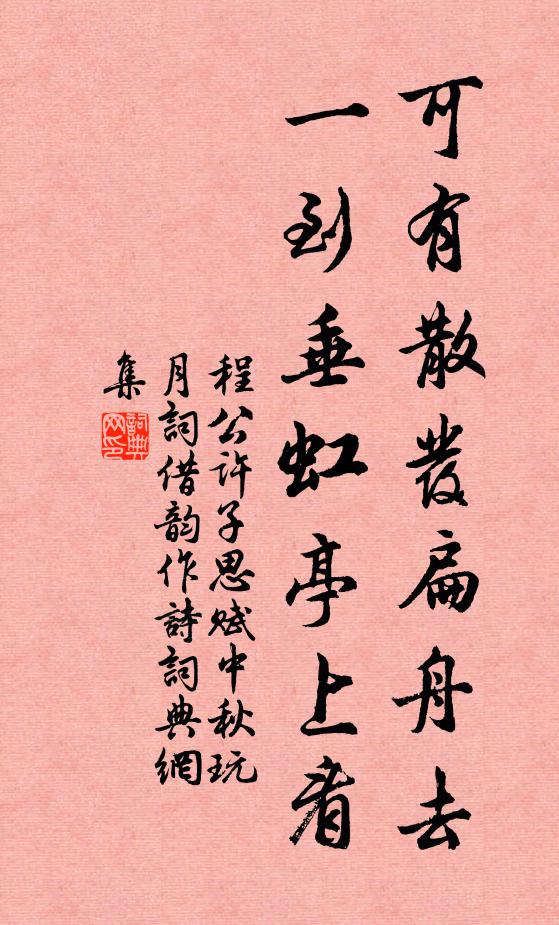 可有散發扁舟去
一到垂虹亭上看
程公许子思赋中秋玩
月詞借韵作詩詞典網
集
詞典
网印